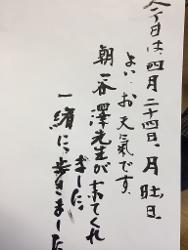 今日は、四月二十四日、月曜日、
よい、お天氣です。
朝、谷澤先生が来てくれ
ました。
一緒に、歩きました